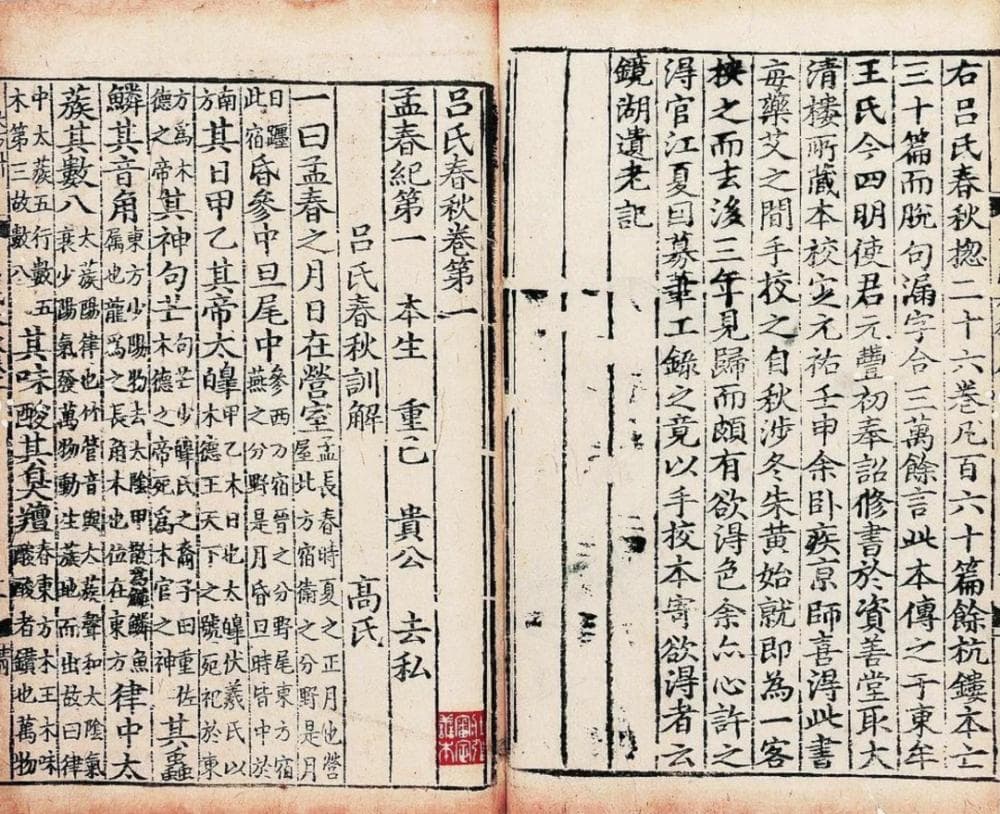 右呂氏春秋揔二十六卷凡百六十篇餘杭鏤本亡
三十篇而脫句漏字合三萬餘言此本傳之于東牟
王氏今四明使君元豐初奉詔修書於資善堂取大
清樓所藏本校定元祐壬申余臥疾京師喜得此書
每藥艾之間手校之自秋涉冬朱黃始就即為一客
挾之而去後三年見歸而頗有欲得色余亦心許之
得官江夏因募筆工錄之竟以手校本寄欲得者云
鏡湖遺老記
呂氏春秋卷第一
孟春紀第一 本生 重己 貴公 去私
呂氏春秋訓解 高氏
一曰孟春之月日在營室孟長春時夏之正月也營室北方宿衛之分野是月
日躔此宿昏參中旦尾中參西方宿晉之分野尾東方宿燕之分野是月昏旦時皆中於
南方其日甲乙其帝太皞甲乙木日也太皞伏羲氏以木德王天下之號死祀於東
方為木德之帝其神句芒句芒少皞氏之裔子曰重佐木德之帝死為木官之神其蟲
鱗其音角東方少陽物去太陰甲散為鱗鱗魚屬也龍為之長角木也位在東方律中太
蔟其數八太蔟陽律也竹管音與太蔟聲和太陰氣衰少陽氣發萬物動生蔟地而出故曰律
中太蔟五行數五木第三故數八其味酸其臭羶春東方木王木味酸酸者鑽也萬物